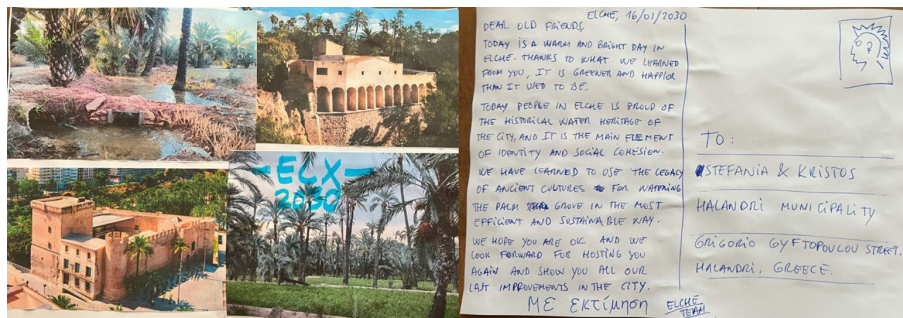 -ELX-
2030
ELCHE, 16/01/2030
DEAR OLD FRIENDS,
TODAY IS A WARM AND BRIGHT DAY IN
ELCHE. THANKS TO WHAT WE LEARNED
FROM YOU, IT IS GREENER AND HAPPIER
THAN IT USED TO BE.
TODAY PEOPLE IN ELCHE IS PROUD OF
THE HISTORICAL WATER HERITAGE OF
THE CITY, AND IT IS THE MAIN ELEMENT
OF IDENTITY AND SOCIAL COHESION.
WE HAVE LEARNED TO USE THE LEGACY
OF ANCIENT CULTURES FOR WATERING
THE PALM GROVE IN THE MOST
EFFICIENT AND SUSTAINABLE WAY.
WE HOPE YOU ARE OK AND WE
LOOK FORWARD FOR HOSTING YOU
AGAIN AND SHOW YOU ALL OUR
LAST IMPROVEMENTS IN THE CITY.
ΜΕ εκτίμηση
ELCHE
TEAM
TO:
STEFANIA & KRISTOS
HALANDRI MUNICIPALITY
GRIGORIO GYFTOPOULOU STREET.
HALANDRI, GREECE.